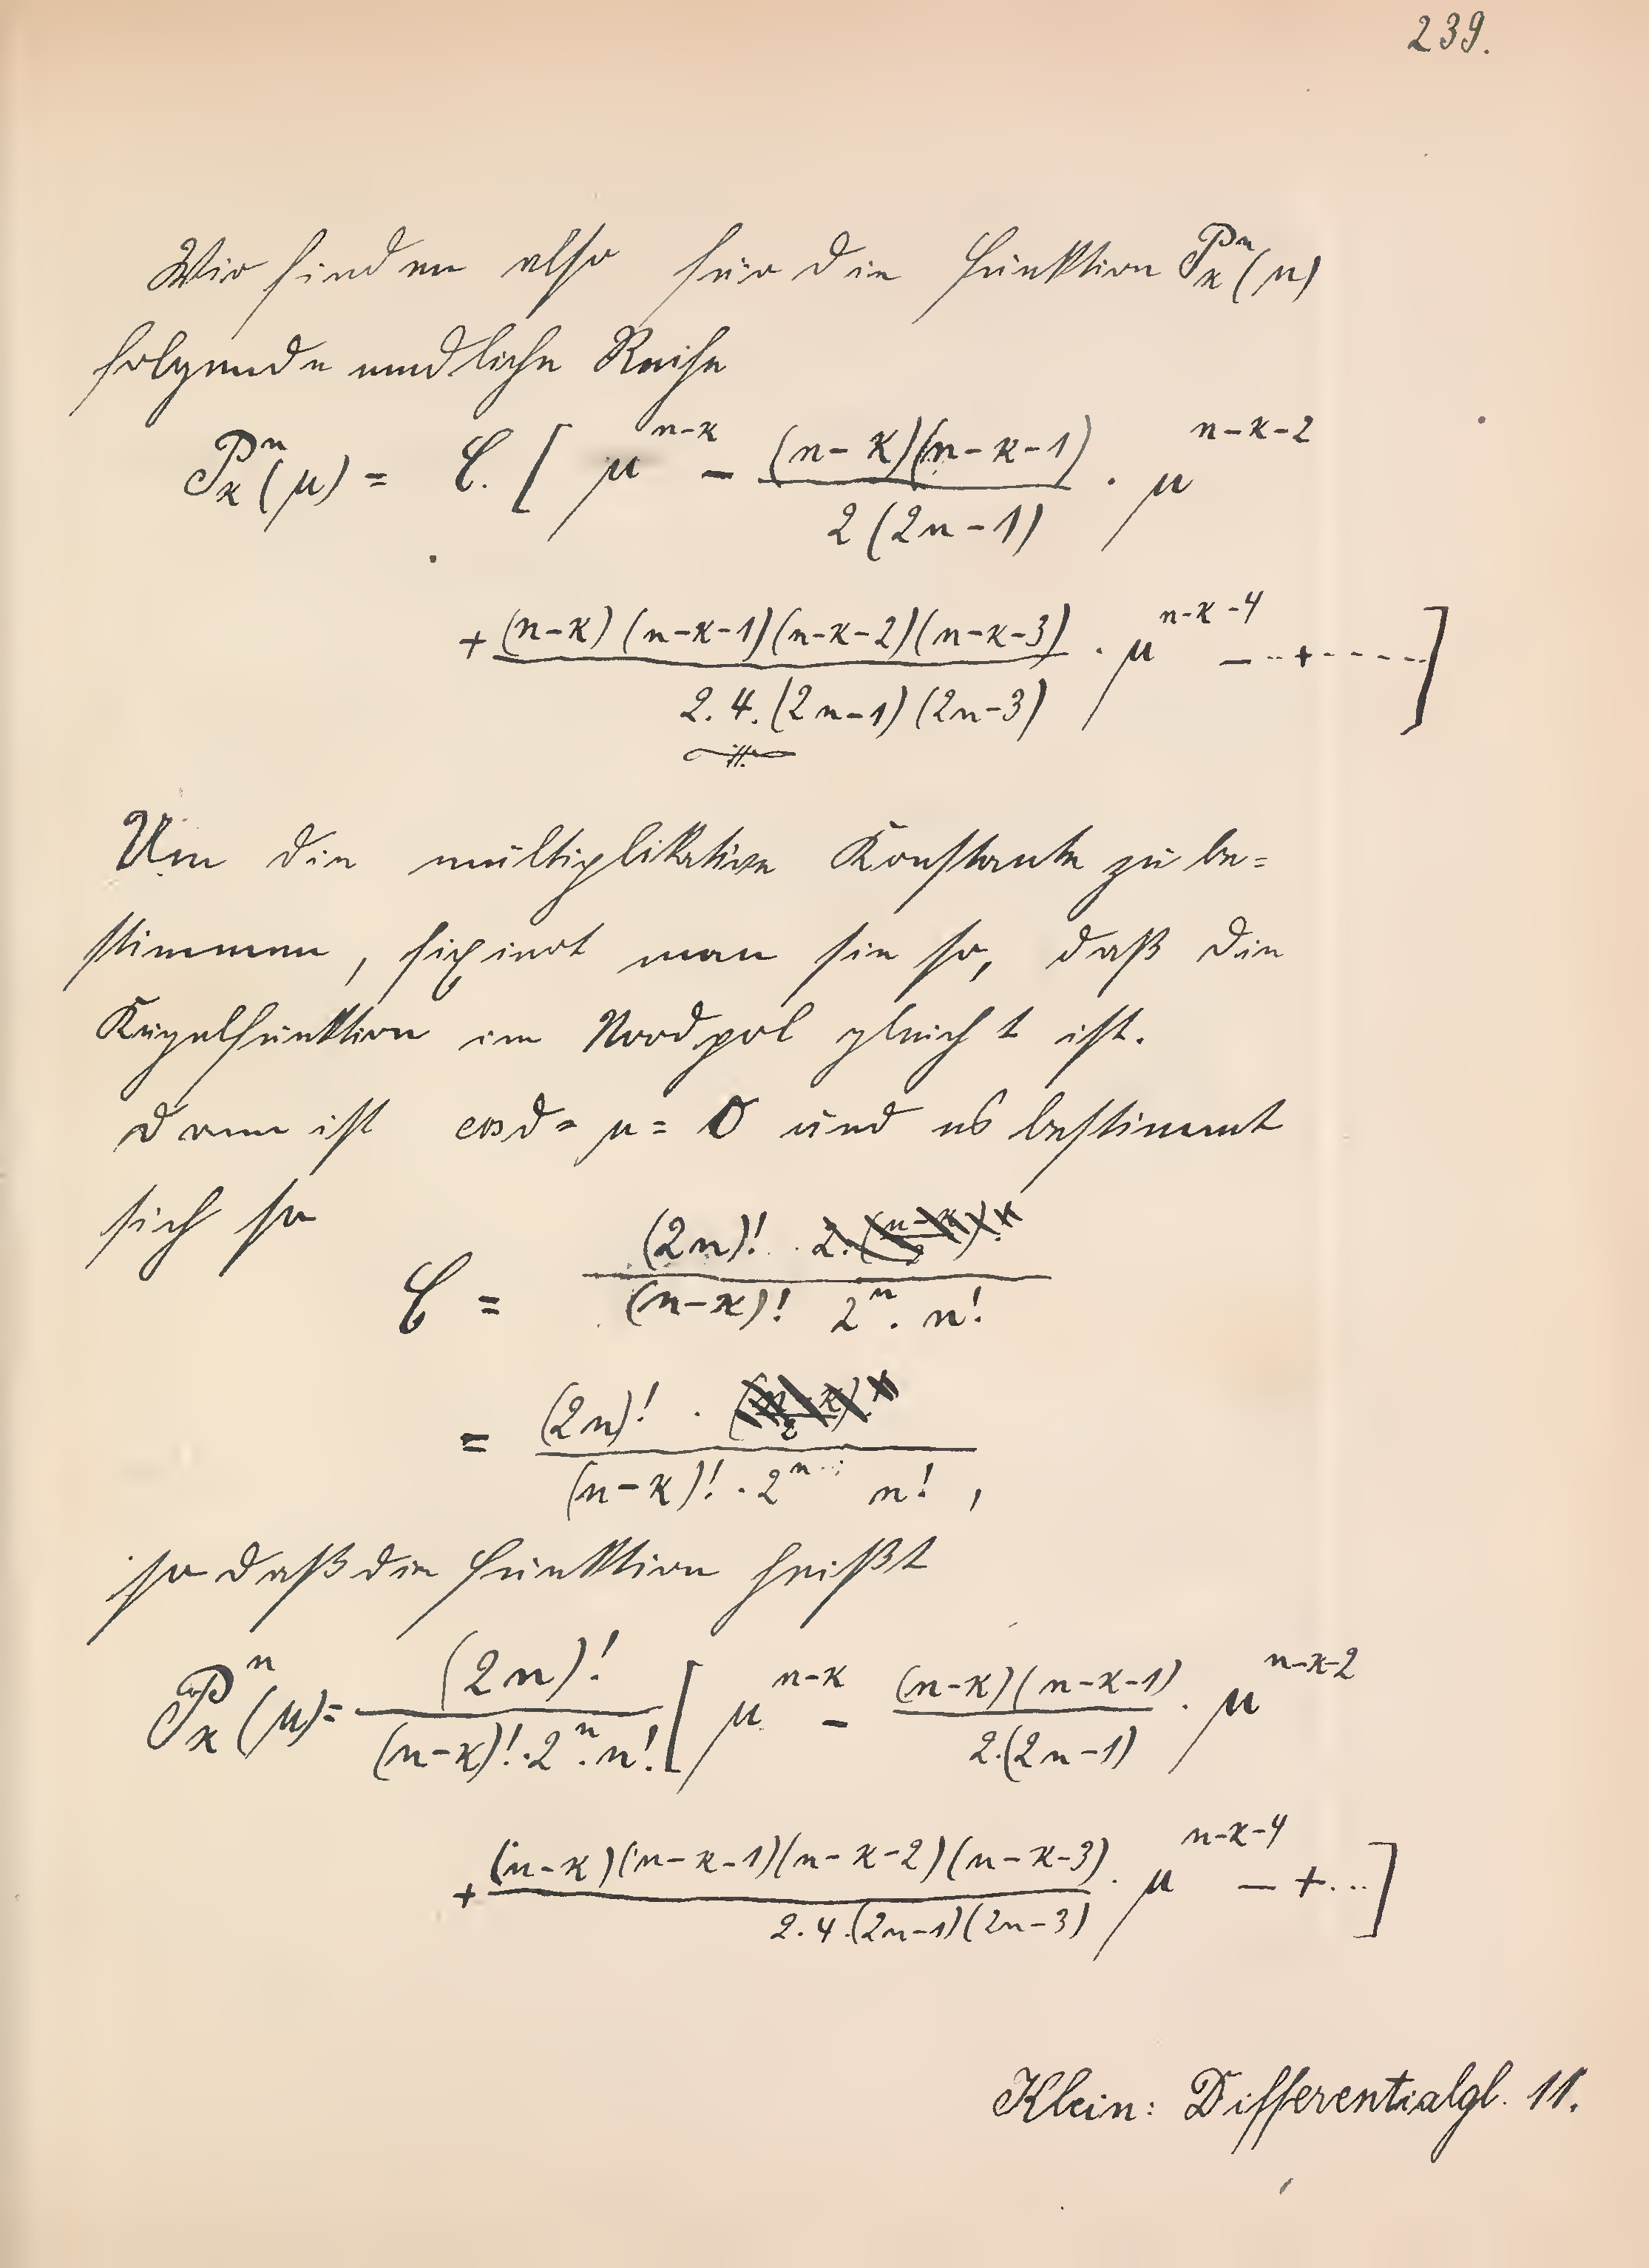 239.
Wir finden also für die Funktion 𝒫ⁿ_ϰ(μ)
folgende endliche Reihe
𝒫ⁿ_ϰ(μ) = C. [ μ^{n-ϰ} - \frac{(n-ϰ)(n-ϰ-1)}{2(2n-1)} · μ^{n-ϰ-2}
+ \frac{(n-ϰ)(n-ϰ-1)(n-ϰ-2)(n-ϰ-3)}{2.4.(2n-1)(2n-3)} · μ^{n-ϰ-4} - ··+----- ]
Um die multiplikative Konstante zu be=
stimmen, fixiert man sie so, daß die
Kugelfunktion im Nordpol gleich 1 ist.
Dann ist cos ϑ = μ = 0 und es bestimmt
sich so
C = \frac{(2n)!}{(n-ϰ)! 2^n . n!}
= \frac{(2n)! ·}{(n-ϰ)! · 2^n n!} ,
so daß die Funktion heißt
𝒫ⁿ_ϰ(μ) = \frac{(2n)!}{(n-ϰ)!·2^n.n!} [ μ^{n-ϰ} - \frac{(n-ϰ)(n-ϰ-1)}{2.(2n-1)} · μ^{n-ϰ-2}
+ \frac{(n-ϰ)(n-ϰ-1)(n-ϰ-2)(n-ϰ-3)}{2.4.(2n-1)(2n-3)} · μ^{n-ϰ-4} - +... ]
Klein: Differentialgl. 11.